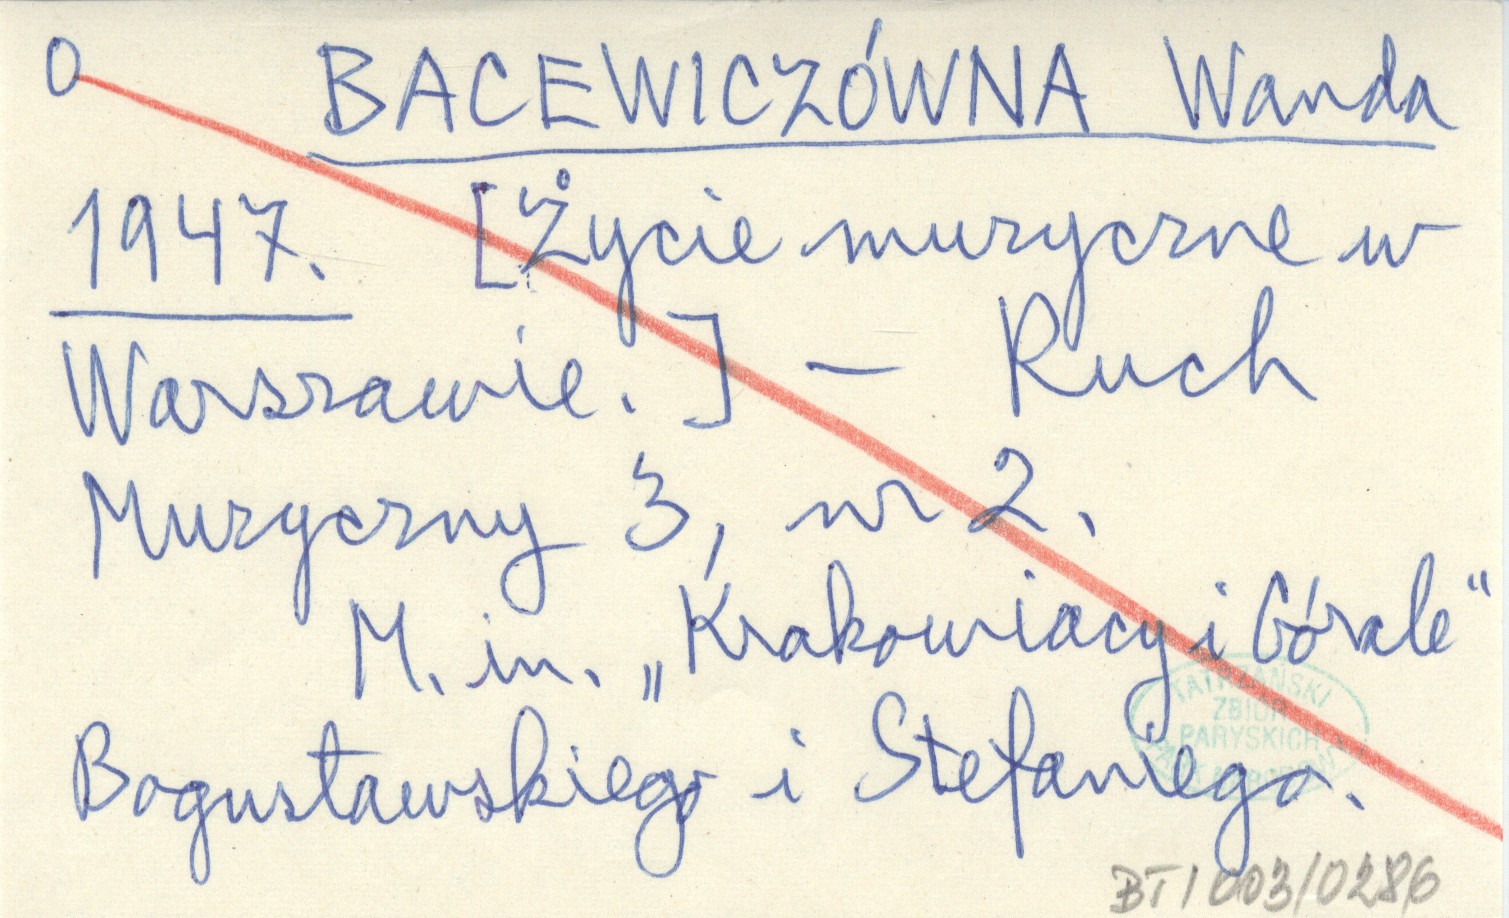 O BACEWICZÓWNA Wanda
1947. [Życie muzyczne w
Warszawie.] — Ruch
Muzyczny 3, nr 2.
M. in. „Krakowiacy i Górale"
Bogusławskiego i Stefaniego.
TATRZAŃSKI
ZBIÓR
PARYSKICH
BT/003/0286